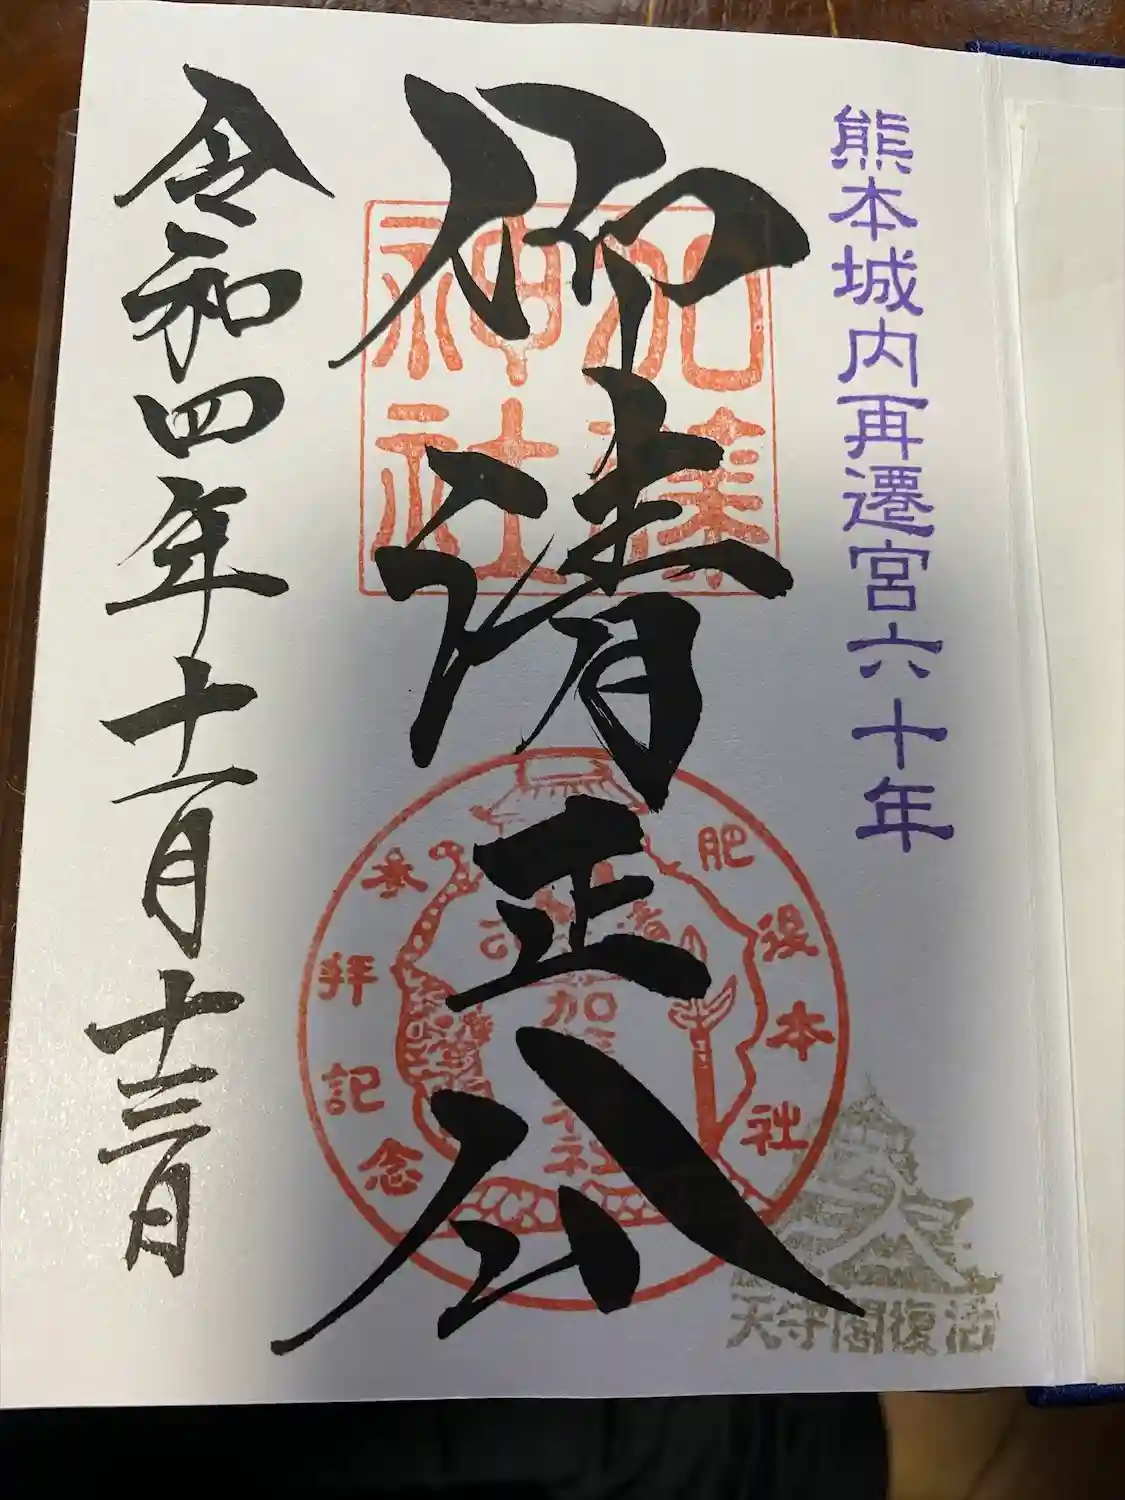 熊本城内再遷宮六十年
仰清正公
加藤
神社
肥後本社
参拝記念
天守閣復活
令和四年十一月十三日